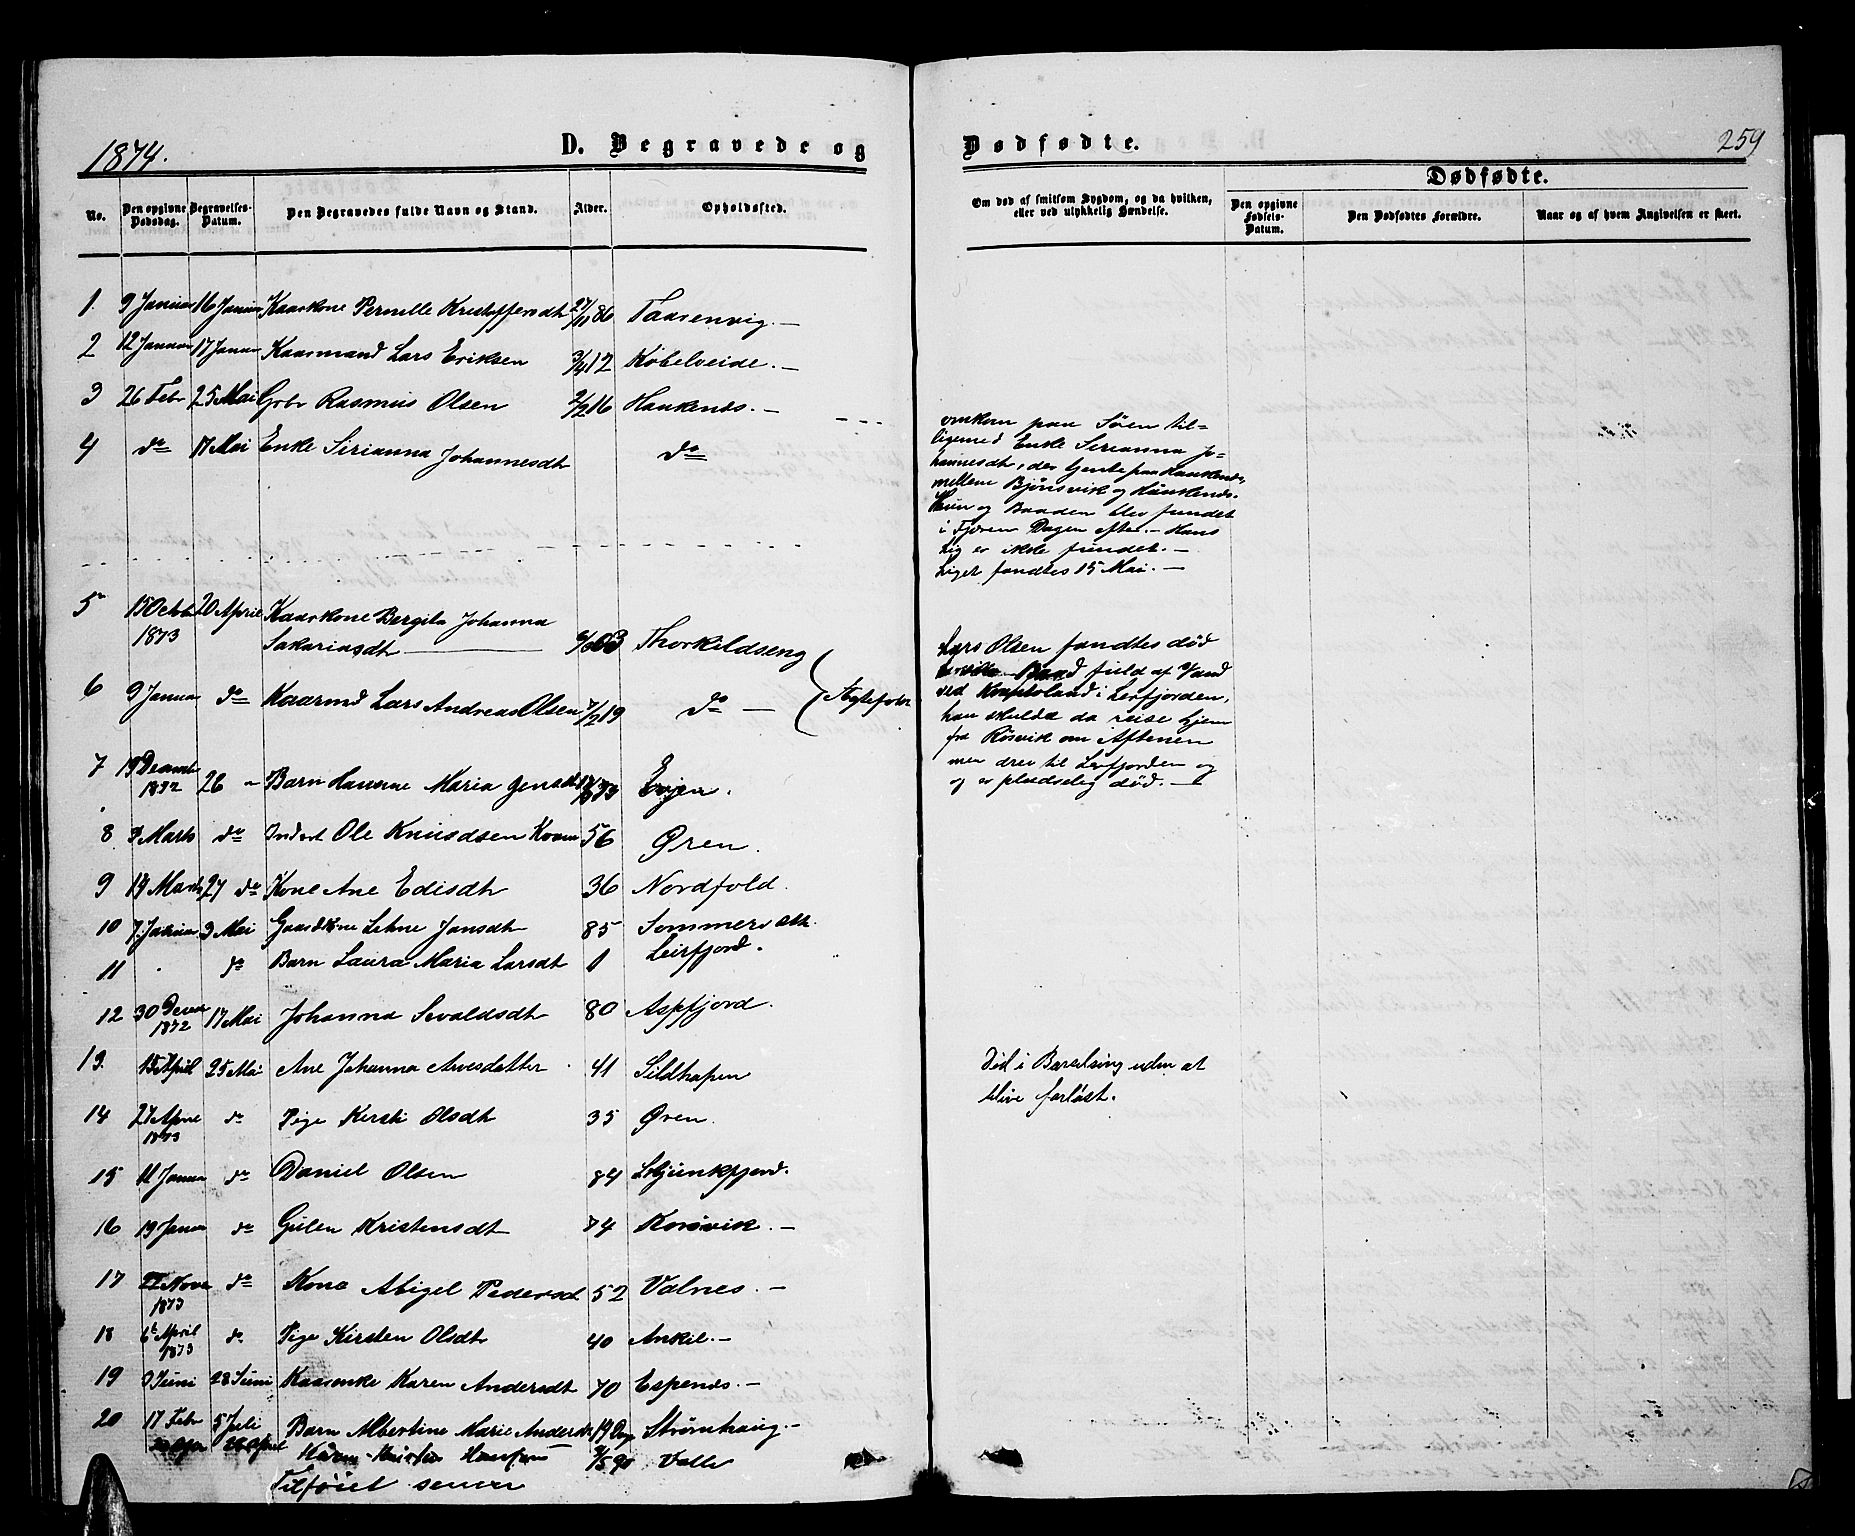 1874.
D. Begravede og
Dødfødte.
259
No.
Den opgivne Dødsdag.
Begravelses-Datum.
Den Begravedes fulde Navn og Stand.
Alder.
Opholdssted.
Om død af smitsom Sygdom, og da hvilken, eller ved ulykkelig Hændelse.
Dødfødte.
Den opgivne Fødsels-Datum.
Den Dødfødtes Forældre.
Naar og af hvem Angivelsen er skeet.
1. 9 Januar 16 Januar Kaarkone Pernille Kristoffersdt 27/11 86 Taasenvig.—
2 12 Januar 17 Januar Kaarmand Lars Eriksen 3/4 12 Kobelveide.—
3 26 Febr 25 Mai Gbr Rasmus Olsen 2/2 16 Haukenæs.—
4 do 17 Mai Enke Sirianna Johannesdt do
omkom paa Søen til-
ligemed Enke Serianna Jo-
hannesdt, der
mellem Bjørsvik og Haukenæs.
Hun og Baaden blev fundet
i Fjæren Dagen efter.— Hans
Lig er ikke fundet.—
Liget fandtes 15 Mai.—
5 15 Octb 1873 20 April Kaarkone Bergita Johanna
Sakariasdt 63 Thorkildseng
6 9 Januar do Kaarmd Lars Andreas Olsen 7/2 19 do — Ægtefolk
Lars Olsen fandtes død
Baad fuld af Vand
ved i Leirfjorden,
han skulde da reise hjem
fra Røsvik om Aftenen
men drev til Leirfjorden og
og er pludselig død.—
7 19 Decemb 1872 26 " Barn Hansine Maria Evjen.
8 3 Marts do Inderst Ole Knudsen 56 Øren.
9 14 Marts 27 do Kone Ane Edisdt 36 Nordfold.
10 7 Januar 3 Mai Gaardkone Lehne Jansdt 85 Sommerset
11 do Barn Laura Maria Larsdt 1 Leirfjord.
12 30 Decbr 1872 17 Mai Johanna Sevaldsdt 80 Aspfjord.
13. 15 April 25 Mai Ane Johanna Arnesdatter 41 Sildhapen
Død i Barselseng uden at
blive forløst.
14 27 April 1873 do Pige Kirsti Olsdt 35 Øren.
15 11 Januar do Daniel Olsen 84
16 19 Januar do Gülen Kristensdt 74 Korsvik.—
17 22 Novb 1873 do Kone Abigel Pedersd 52 Valnes.—
18 6te April 1873 do Pige Kirsten Olsdt 40 Ankil.—
19 3 Juni 28 Juni Kaarenke Karen Andersdt 70 Espenæs.—
20 17 Febr 5 Juli Barn Albertine Marie Andersdt 19 Dag Strømhaug.—
28 April 3/5 90 Valle
Tilføiet senere